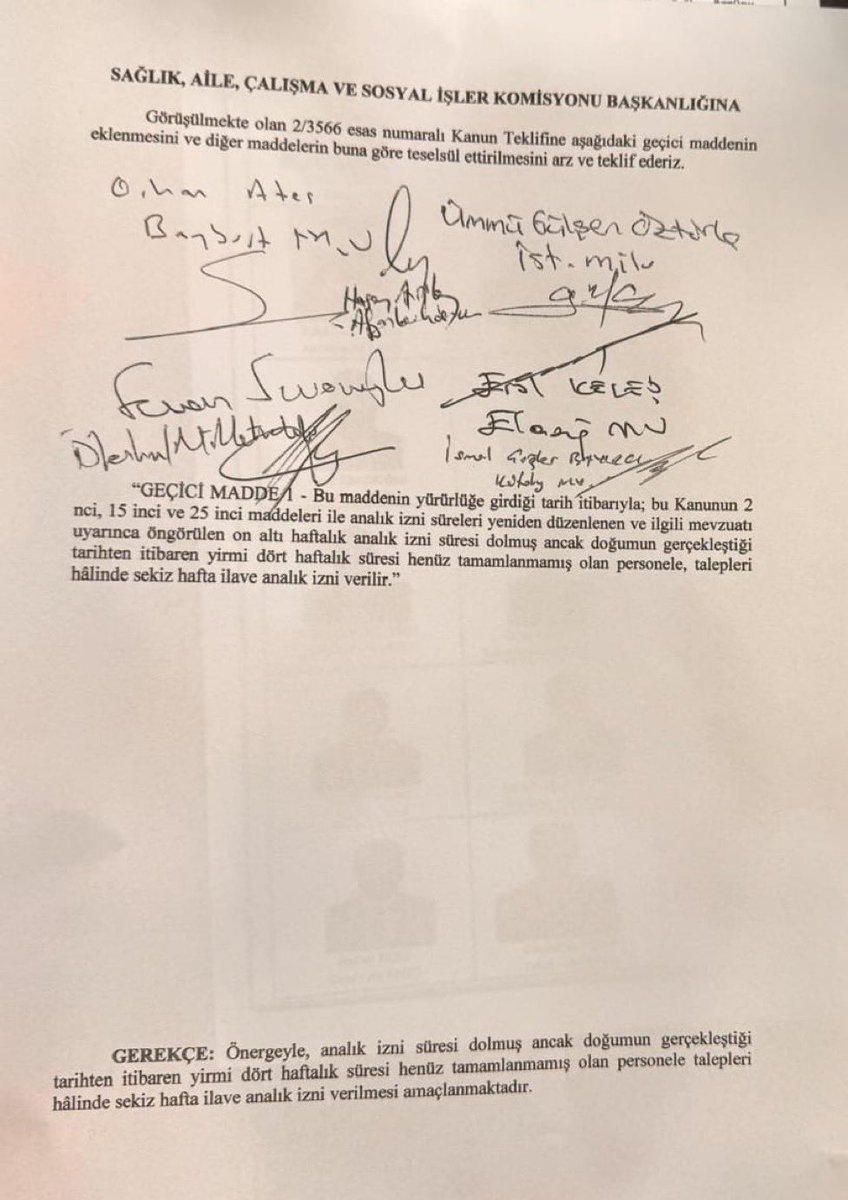 SAĞLIK, AİLE, ÇALIŞMA VE SOSYAL İŞLER KOMİSYONU BAŞKANLIĞINA
Görüşülmekte olan 2/3566 esas numaralı Kanun Teklifine aşağıdaki geçici maddenin
eklenmesini ve diğer maddelerin buna göre teselsül ettirilmesini arz ve teklif ederiz.
Orhan Ateş
Bayburt M.V
Ümmü Gülşen Öztürk
İst. milv
Hasan
KELEŞ
Elazığ MV
İsmail Çağlar Bayırcı
Kütahy MV.
"GEÇİCİ MADDE 1 - Bu maddenin yürürlüğe girdiği tarih itibarıyla; bu Kanunun 2
nci, 15 inci ve 25 inci maddeleri ile analık izni süreleri yeniden düzenlenen ve ilgili mevzuatı
uyarınca öngörülen on altı haftalık analık izni süresi dolmuş ancak doğumun gerçekleştiği
tarihten itibaren yirmi dört haftalık süresi henüz tamamlanmamış olan personele, talepleri
hâlinde sekiz hafta ilave analık izni verilir."
GEREKÇE: Önergeyle, analık izni süresi dolmuş ancak doğumun gerçekleştiği
tarihten itibaren yirmi dört haftalık süresi henüz tamamlanmamış olan personele talepleri
hâlinde sekiz hafta ilave analık izni verilmesi amaçlanmaktadır.